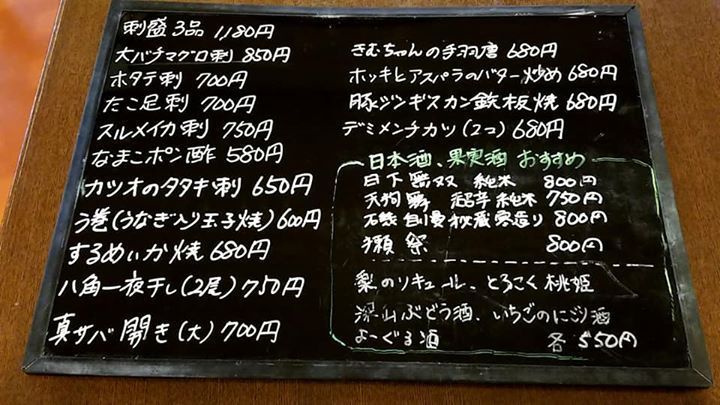 刺盛3品 1180円
大バチマグロ刺 850円
ホタテ刺 700円
たこ足刺 700円
スルメイカ刺 750円
なまこポン酢 580円
カツオのタタキ刺 650円
う巻(うなぎ入り玉子焼)600円
するめいか焼 680円
八角一夜干し(2尾)750円
真サバ開き(大)700円
きむちゃんの手羽唐 680円
ホッキとアスパラのバター炒め 680円
豚ジンギスカン鉄板焼 680円
デミメンチカツ(2コ)680円
日本酒、果実酒 おすすめ
日下無双 純米 800円
天狗舞 超辛純米 750円
磯自慢 秘蔵寒造り 800円
獺祭 800円
梨のリキュール、とろこく桃姫
深山ぶどう酒、いちごのにごり酒
よーぐる酒 各550円